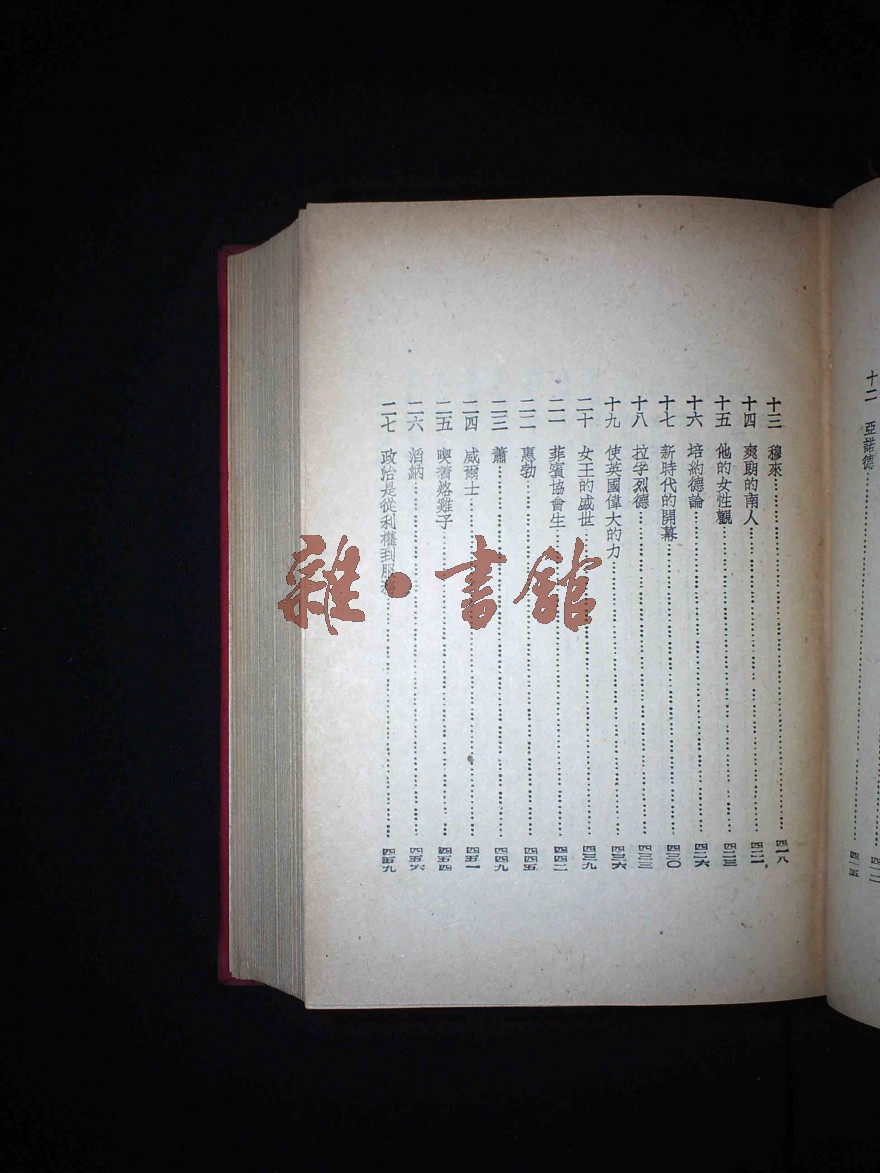 十二 亞諾德……四一五
十三 穆來……四一八
十四 爽朗的南人……四二一
十五 他的女性觀……四二三
十六 培約德論……四二六
十七 新時代的開幕……四三〇
十八 拉字烈德……四三三
十九 使英國偉大的力……四三六
二十 女王的盛世……四三九
二一 菲濱協會生……四四二
二二 惠勃……四四五
二三 蕭……四四九
二四 威爾士……四五一
二五 喫著烙雞子……四五四
二六 滔納……四五六
二七 政治是從利權到服……四五九
雜·書館